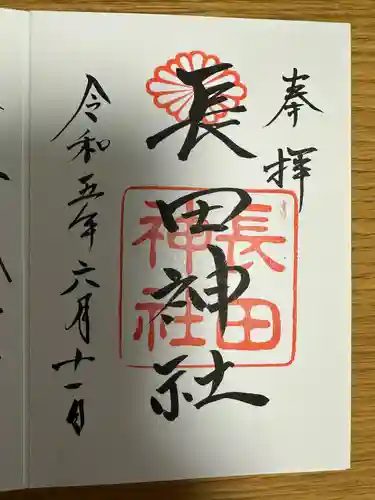 奉拝
長田神社
長田
神社
令和五年六月十一日